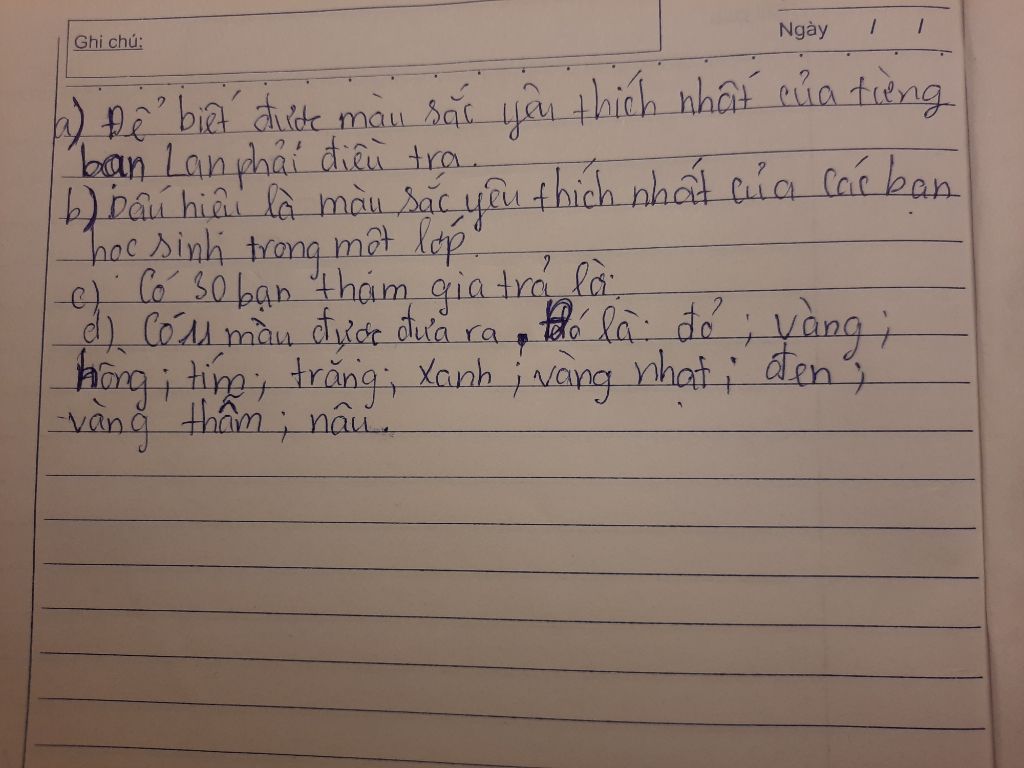 Ghi chú:
Ngày / /
a) Để biết được màu sắc yêu thích nhất của từng
bạn Lan phải điều tra.
b) Dấu hiệu là màu sắc yêu thích nhất của các bạn
học sinh trong một lớp.
c) Có 30 bạn tham gia trả lời.
d) Có 11 màu được đưa ra, đó là: đỏ; vàng;
hồng; tím; trắng; xanh; vàng nhạt; đen;
vàng thẫm; nâu.